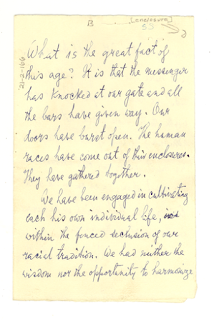 B
What is the great fact of
this age? It is that the messenger
has knocked at our gate and all
the bars have given way. Our
doors have burst open. The human
races have come out of their enclosures.
They have gathered together.
We have been engaged in cultivating
each his own individual life,
within the fenced seclusion of our
racial tradition. We had neither the
wisdom nor the opportunity to harmonize